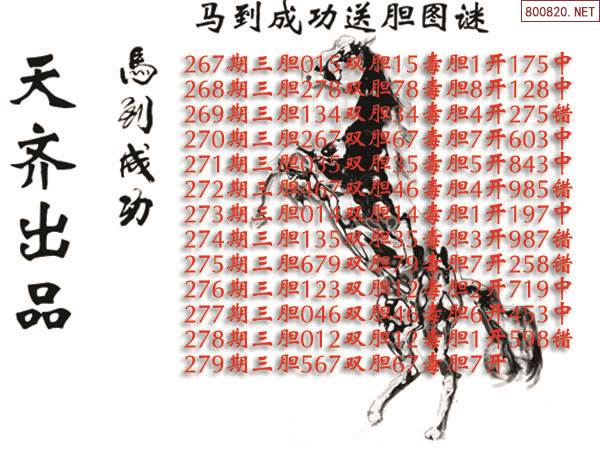 马到成功送胆图谜
800820.NET
天齐出品
馬到成功
267期三胆015双胆15毒胆1开175中
268期三胆278双胆78毒胆8开128中
269期三胆134双胆34毒胆4开275错
270期三胆267双胆67毒胆7开603中
271期三胆035双胆35毒胆5开843中
272期三胆467双胆46毒胆4开985错
273期三胆014双胆14毒胆1开197中
274期三胆135双胆35毒胆3开987错
275期三胆679双胆79毒胆7开258错
276期三胆123双胆12毒胆 开719中
277期三胆046双胆46毒胆6开453中
278期三胆012双胆12毒胆1开598错
279期三胆567双胆67毒胆7开